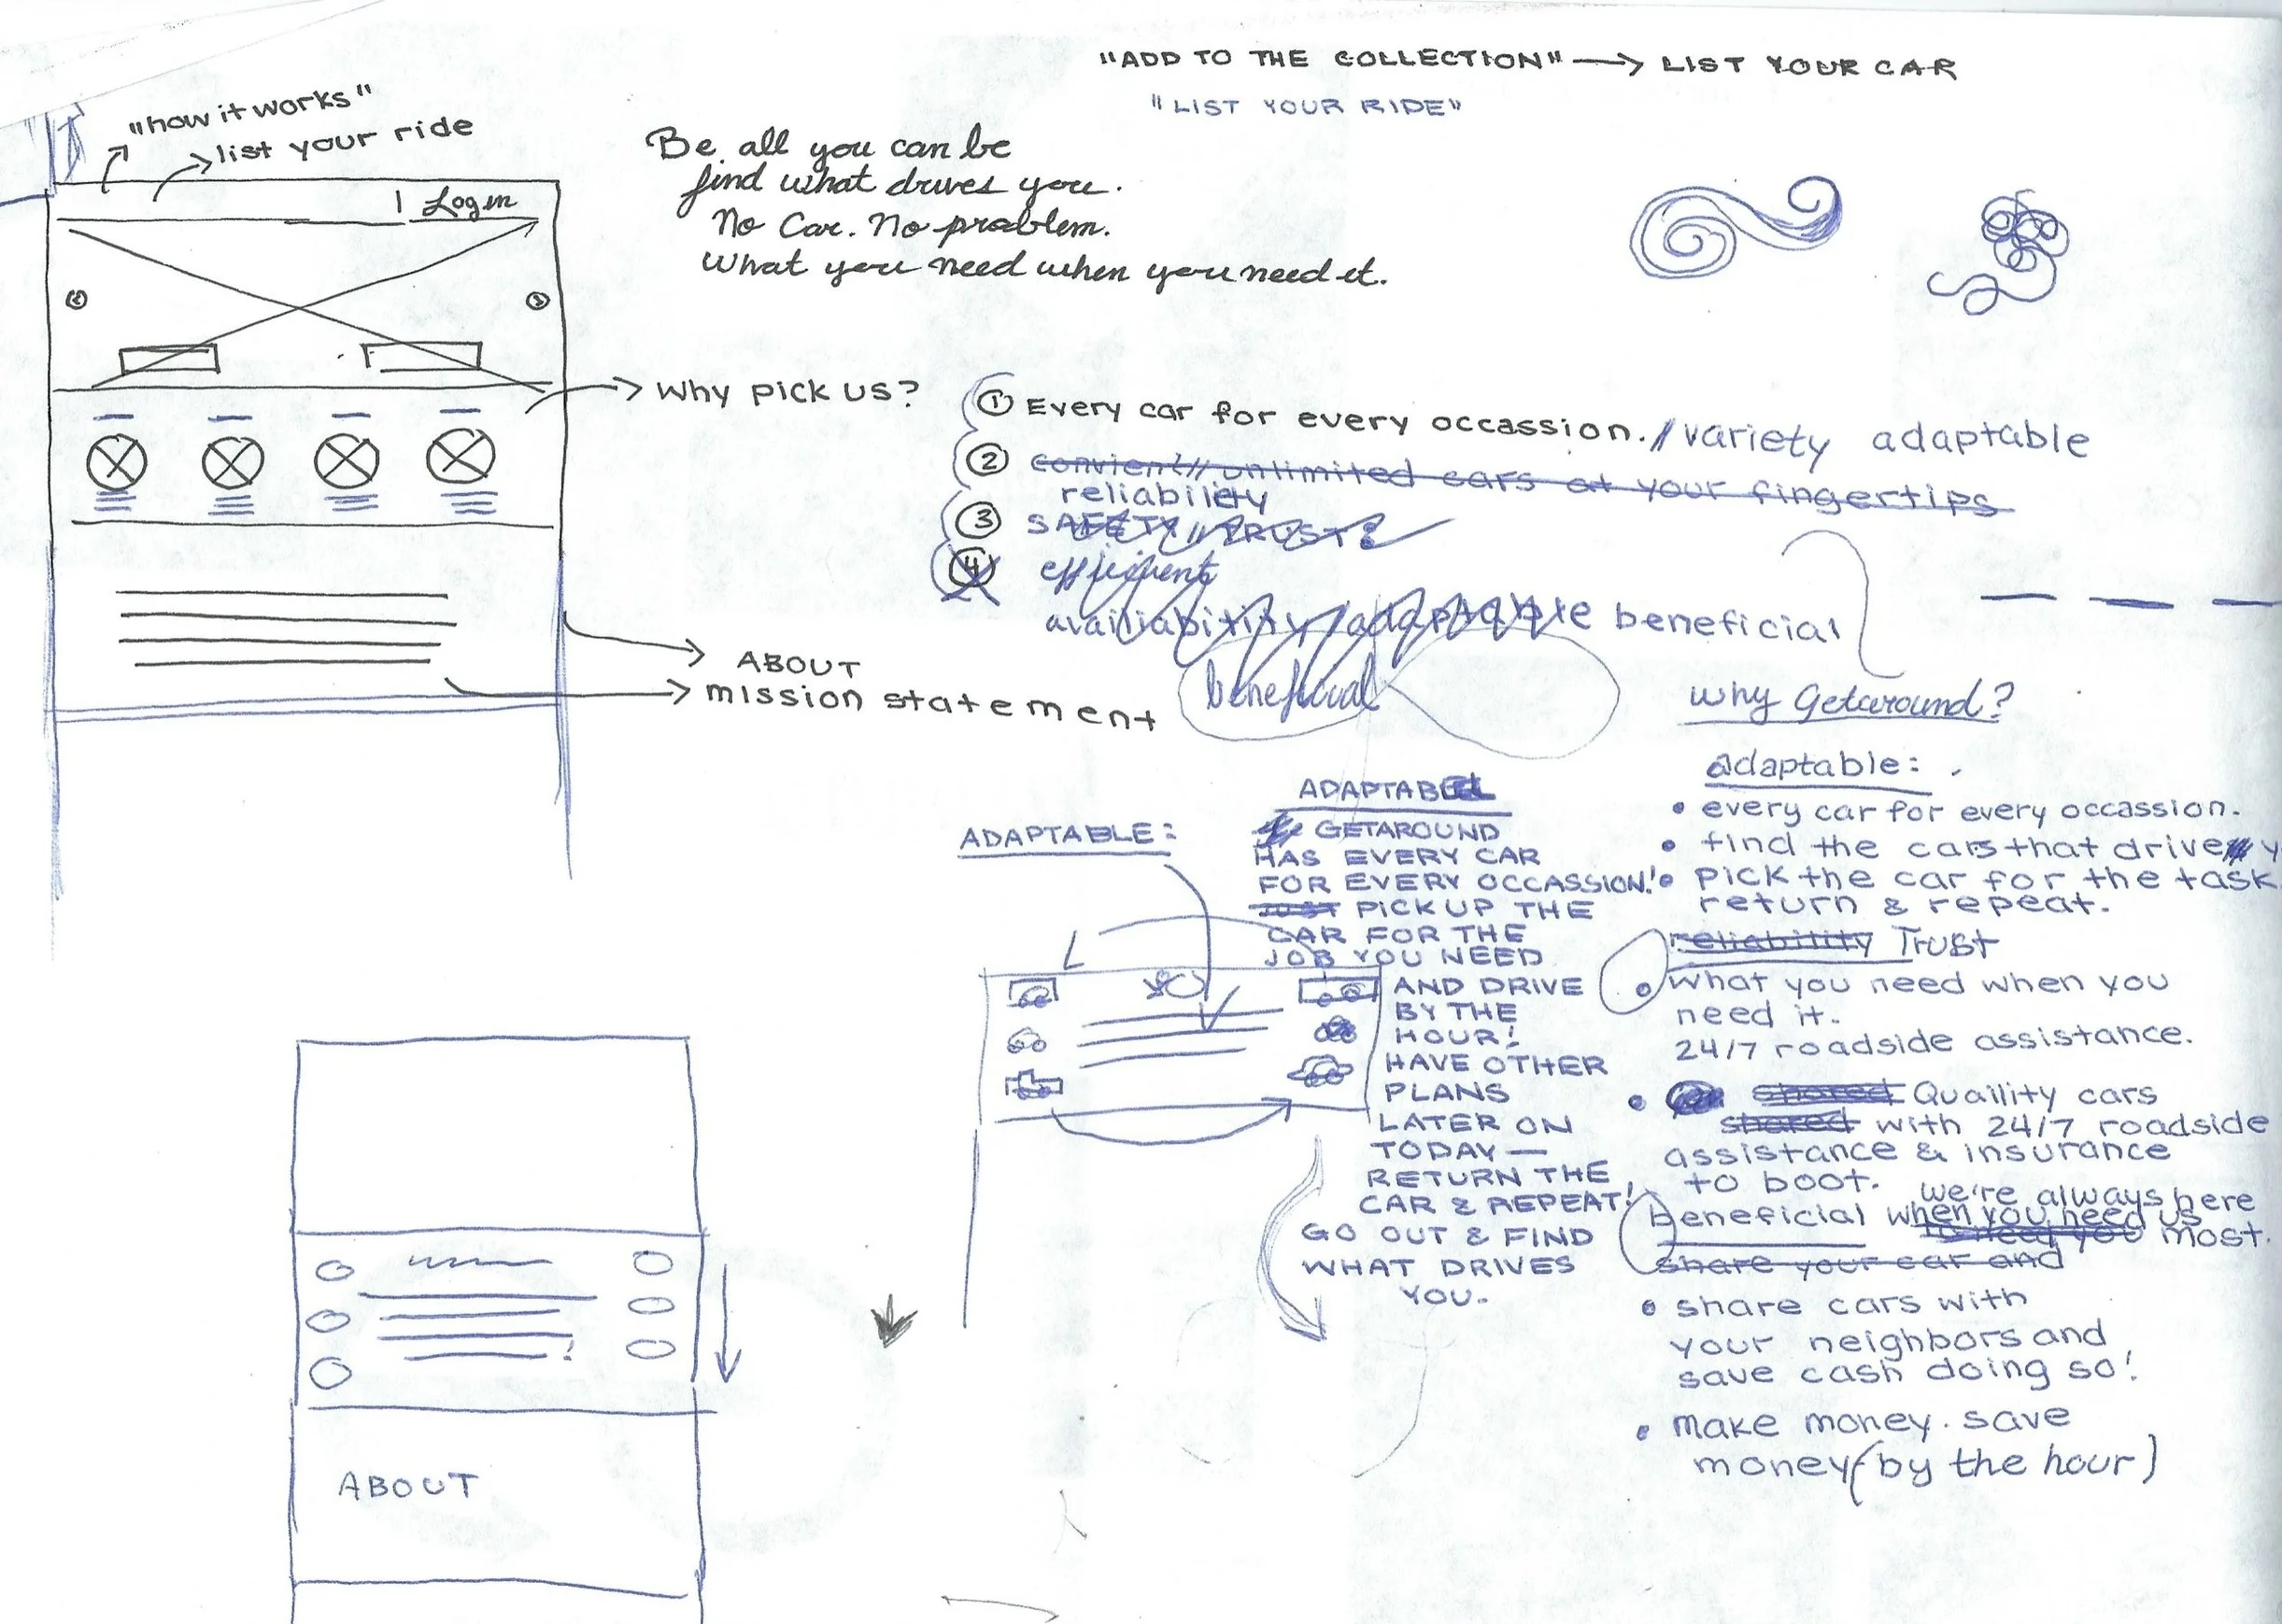 "ADD TO THE COLLECTION" → LIST YOUR CAR
"LIST YOUR RIDE"
"how it works"
list your ride
Login
Be all you can be
find what drives you.
No Car. No problem.
What you need when you need it.
Why pick us?
① Every car for every occassion. // variety adaptable
② convient // unlimited cars at your fingertips
reliability
③ SAFETY // TRUST
④ efficient
availiability / adaptable beneficial
beneficial
ABOUT
mission statement
ADAPTABLE:
ADAPTABEL
GETAROUND
HAS EVERY CAR
FOR EVERY OCCASSION!
JUST PICK UP THE
CAR FOR THE
JOB YOU NEED
AND DRIVE
BY THE
HOUR!
HAVE OTHER
PLANS
LATER ON
TODAY—
RETURN THE
CAR & REPEAT!
GO OUT & FIND
WHAT DRIVES
YOU.
why Getaround?
adaptable:
• every car for every occassion.
• find the cars that drive y
• pick the car for the task
return & repeat.
reliability Trust
• what you need when you
need it.
24/7 roadside assistance.
• shared Quaility cars
shared with 24/7 roadside
assistance & insurance
to boot.
we're always here
beneficial when you need us
to need you most.
share your car and
• share cars with
your neighbors and
save cash doing so!
• make money. save
money (by the hour)
ABOUT